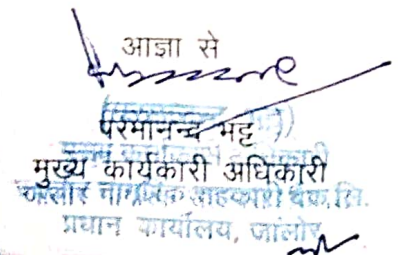 आज्ञा से
परमानन्द भट्ट
मुख्य कार्यकारी अधिकारी
जालोर नागरिक सहकारी बैंक लि.
प्रधान कार्यालय, जालोर